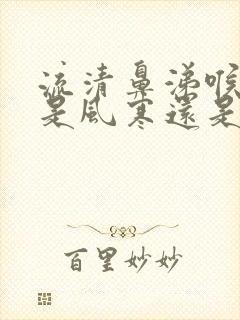 流清鼻涕喉
是風寒還是
百里妙妙